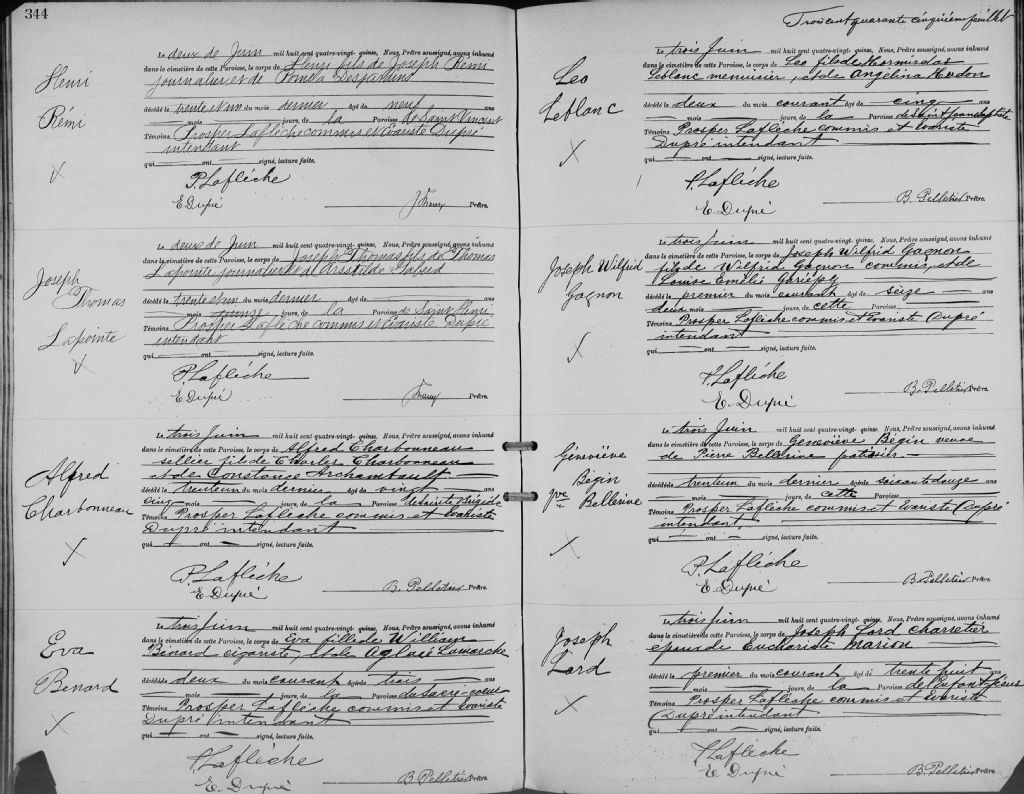 344
Henri
Rémi
Le deux de Juin mil huit cent quatre-vingt- quinze, Nous, Prêtre soussigné, avons inhumé
dans le cimetière de cette Paroisse, le corps de Henri fils de Joseph Rémi
journalier et de Pomela Desjardins
décédé le trente et un du mois dernier âgé de neuf ans
mois jours, de la Paroisse de Saint Vincent
Témoins Prosper Laflèche commis et Evariste Dupré
intendant
qui ont signé, lecture faite.
P. Laflèche
E. Dupré
Prêtre.
Joseph
Thomas
Lapointe
Le deux de Juin mil huit cent quatre-vingt- quinze, Nous, Prêtre soussigné, avons inhumé
dans le cimetière de cette Paroisse, le corps de Joseph Thomas fils de Thomas
Lapointe journalier et d'
décédé le trente et un du mois dernier âgé de ans
mois quinze jours, de la Paroisse de Saint Henri
Témoins Prosper Laflèche commis et Evariste Dupré
intendant
qui ont signé, lecture faite.
P. Laflèche
E. Dupré
Prêtre.
Alfred
Charbonneau
Le trois Juin mil huit cent quatre-vingt- quinze, Nous, Prêtre soussigné, avons inhumé
dans le cimetière de cette Paroisse, le corps de Alfred Charbonneau
sellier fils de Charles Charbonneau
et de Constance Archambault
décédé le trenteun du mois dernier âgé de vingt ans
cinq mois jours, de la Paroisse de Sainte Brigide
Témoins Prosper Laflèche commis et Evariste
Dupré intendant
qui ont signé, lecture faite.
P. Laflèche
E. Dupré
B. Pelletier Prêtre.
Eva
Benard
Le trois Juin mil huit cent quatre-vingt- quinze, Nous, Prêtre soussigné, avons inhumé
dans le cimetière de cette Paroisse, le corps de Eva fille de William
Bénard cigariste, et de Aglaé Lamarche
décédé le deux du mois courant âgé de trois ans
mois jours, de la Paroisse du Sacré-coeur
Témoins Prosper Laflèche commis et Evariste
Dupré intendant
qui ont signé, lecture faite.
P. Laflèche
E. Dupré
B. Pelletier Prêtre.
Trois cent quarante cinquième feuillet
Leo
Leblanc
Le trois Juin mil huit cent quatre-vingt- quinze, Nous, Prêtre soussigné, avons inhumé
dans le cimetière de cette Paroisse, le corps de Leo fils de Hormisdas
Leblanc menuisier, et de Angelina Hudon
décédé le deux du mois courant âgé de cinq ans
mois jours, de la Paroisse de Saint Jean Baptiste
Témoins Prosper Laflèche commis et Evariste
Dupré intendant
qui ont signé, lecture faite.
P. Laflèche
E. Dupré
B. Pelletier Prêtre.
Joseph Wilfrid
Gagnon
Le trois Juin mil huit cent quatre-vingt- quinze, Nous, Prêtre soussigné, avons inhumé
dans le cimetière de cette Paroisse, le corps de Joseph Wilfrid Gagnon
fils de Wilfrid Gagnon commis, et de
Louise Emélie Gariépy
décédé le premier du mois courant âgé de seize ans
deux mois jours, de cette Paroisse
Témoins Prosper Laflèche commis et Evariste Dupré
intendant
qui ont signé, lecture faite.
P. Laflèche
E. Dupré
B. Pelletier Prêtre.
Géneviève
Bégin
Vve Bellerive
Le trois Juin mil huit cent quatre-vingt- quinze, Nous, Prêtre soussigné, avons inhumé
dans le cimetière de cette Paroisse, le corps de Geneviève Bégin veuve
de Pierre Bellerive patissier
décédé le trenteun du mois dernier âgé de soixantedouze ans
mois jours, de cette Paroisse
Témoins Prosper Laflèche commis et Evariste Dupré
intendant
qui ont signé, lecture faite.
P. Laflèche
E. Dupré
B. Pelletier Prêtre.
Joseph
Lord
Le trois Juin mil huit cent quatre-vingt- quinze, Nous, Prêtre soussigné, avons inhumé
dans le cimetière de cette Paroisse, le corps de Joseph Lord charretier
epoux de Euchariste Marion
décédé le premier du mois courant âgé de trente huit ans
mois jours, de la Paroisse de l'enfant Jesus
Témoins Prosper Laflèche commis et Evariste
Dupré intendant
qui ont signé, lecture faite.
P. Laflèche
E. Dupré
B. Pelletier Prêtre.